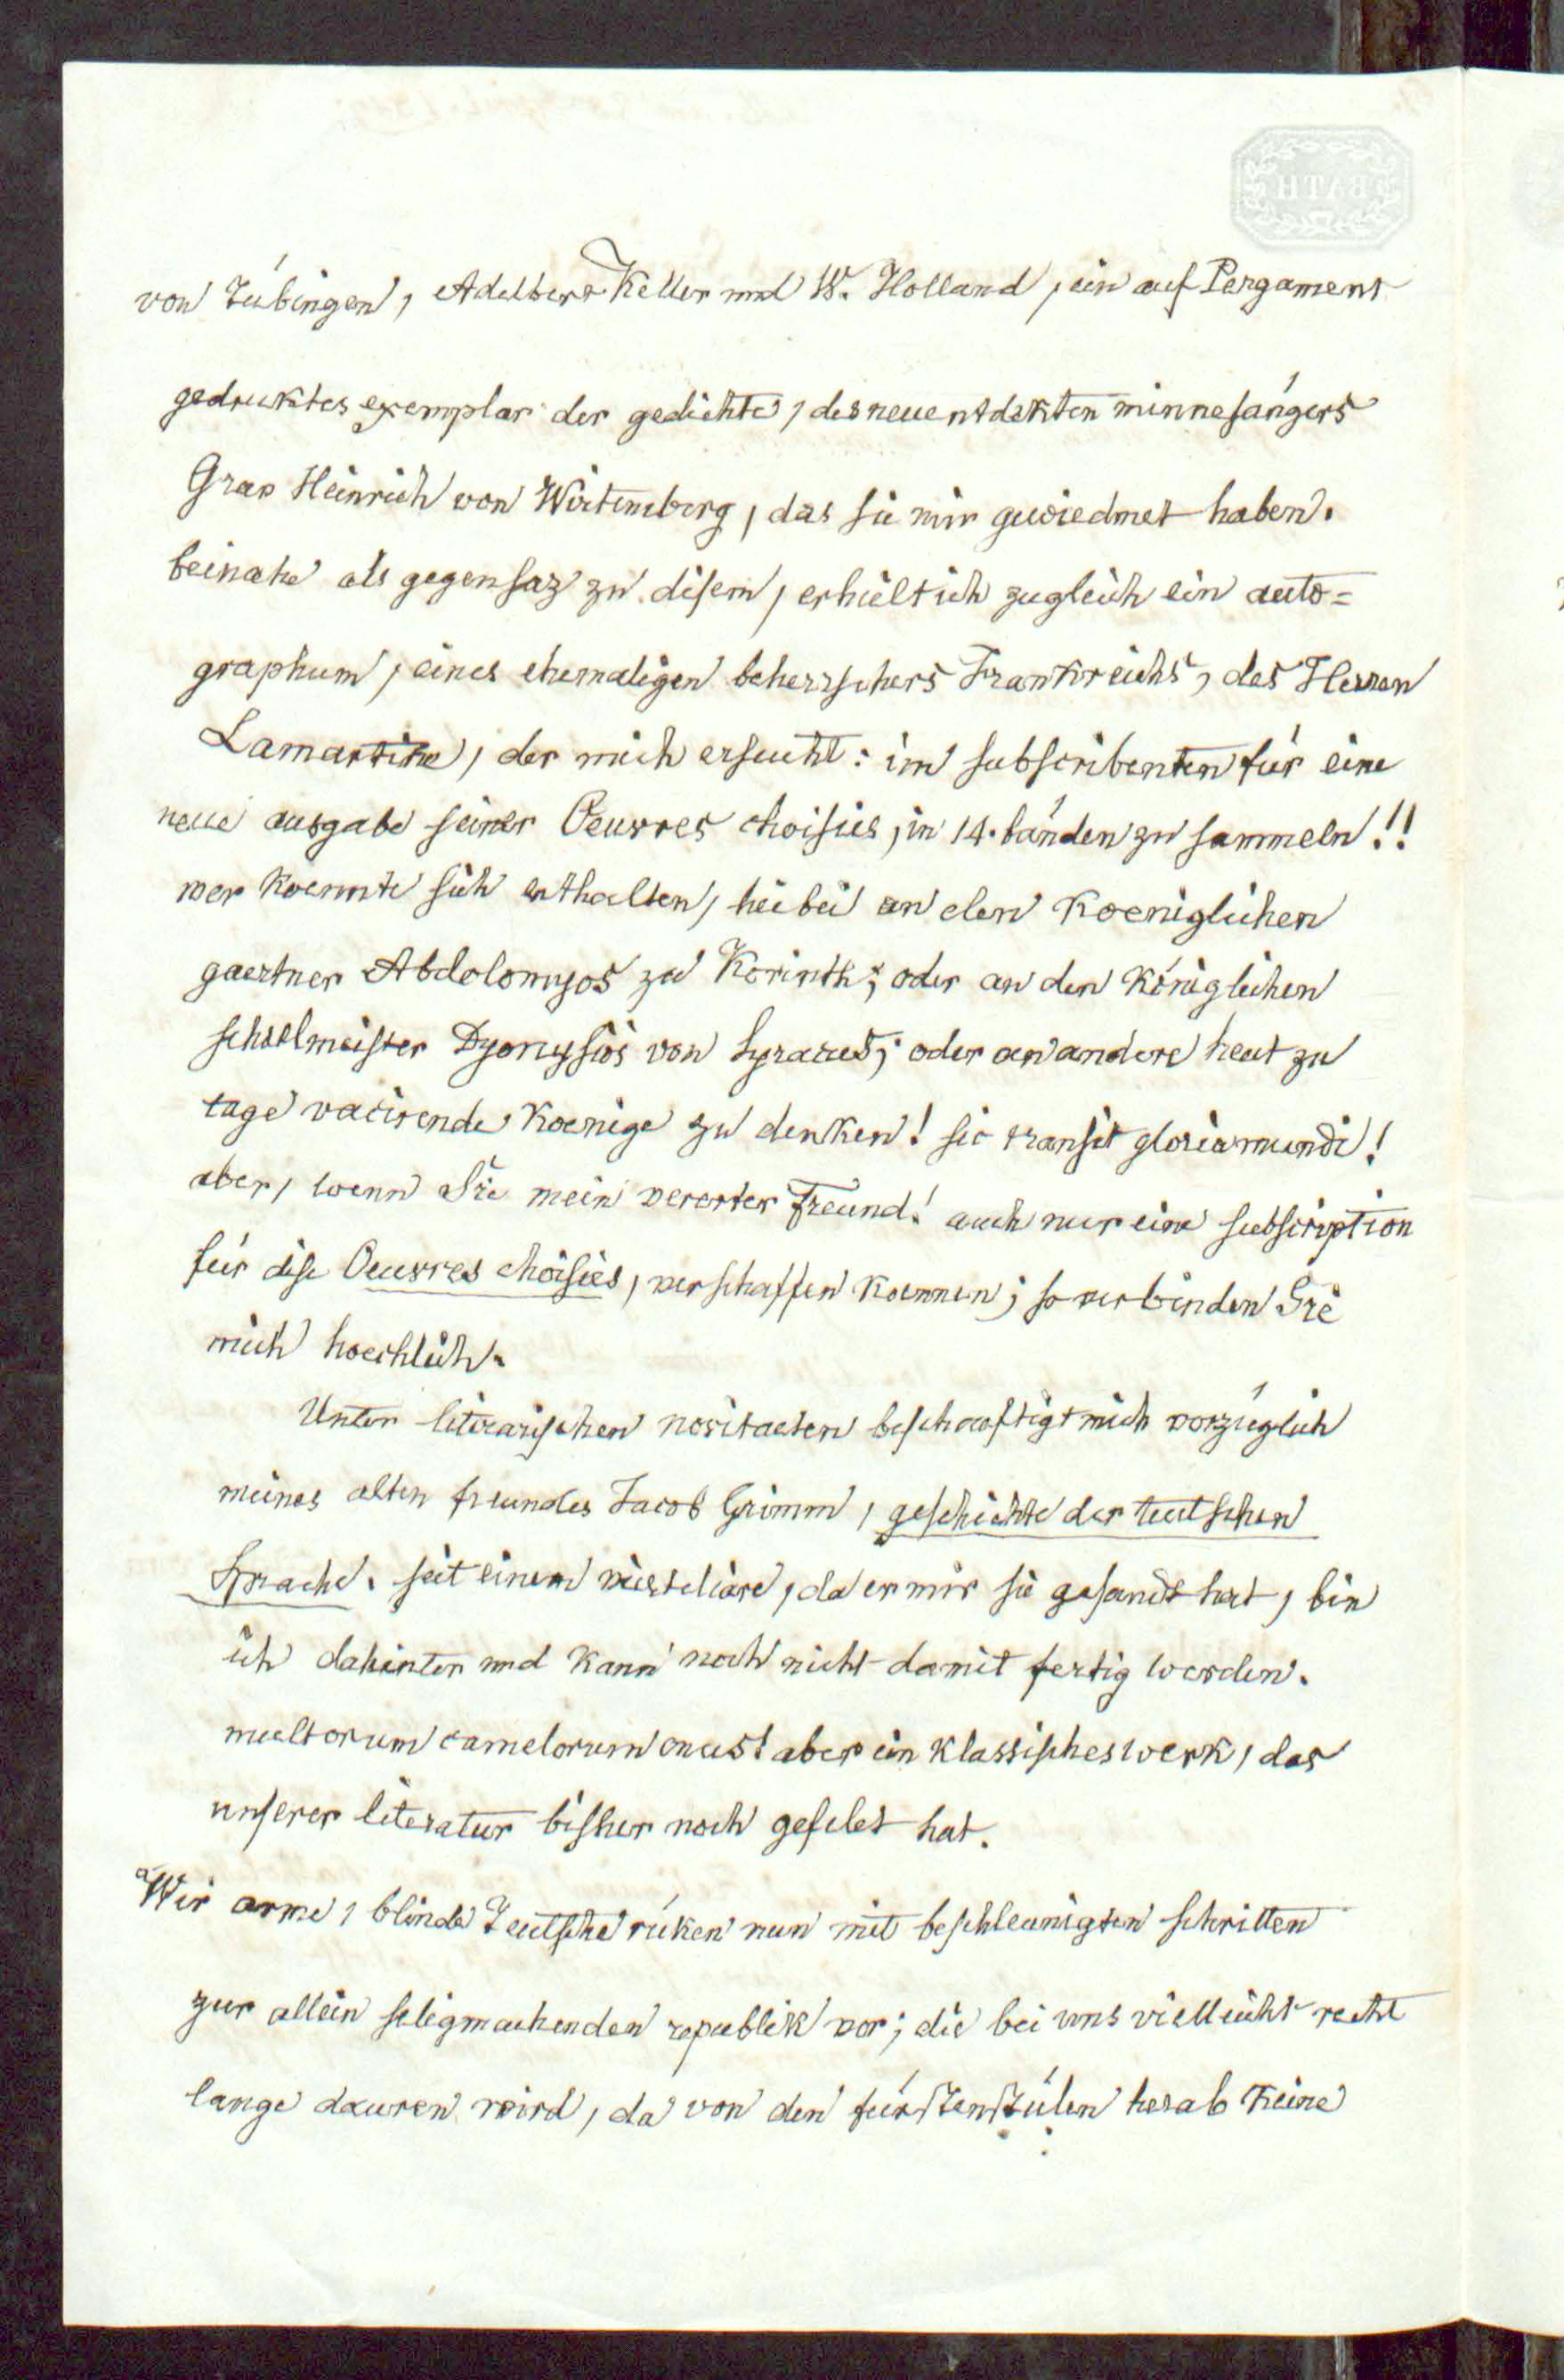 BATH
von Tübingen, Adelbert Keller und W. Holland, ein auf Pergament
gedruktes exemplar der gedichte, des neuentdekten minnesängers
Grav Heinrich von Wirtemberg, das sie mir gewiedmet haben.
beinahe als gegensaz zu disem, erhielt ich zugleich ein auto=
graphum, eines ehemaligen beherrschers Frankreichs, des Herren
Lamartine, der mich ersucht: im subscribenten für eine
neue ausgabe seiner Oeuvres choisies, in 14. bänden zu sammeln!!
wer koennte sich enthalten, hiebei an den koeniglichen
gaertner Abdolomyos zu Korinth; oder an den königlichen
schoelmeister Dyonysios von Syracus; oder an andere heut zu
tage vacirende koenige zu denken! sic transit gloria mundi!
aber, wenn Sie mein vererter Freund! auch nur eine subscription
für dise Oeuvres choisies, verschaffen koennen; so verbinden Sie
mich hoechlich.
Unter literarischen novitaeten beschaeftigt mich vorzüglich
meines alten freundes Jacob Grimm, geschichte der teutschen
Sprache. seit einem vierteliare, da er mir sie gesandt hat, bin
ich dahinter und kann noch nicht damit fertig werden.
multorum camelorum onus! aber ein klassisches werk, das
unserer literatur bisher noch gefelet hat.
Wir arme, blinde Teutsche rüken nun mit beschleunigten schritten
zur allein seligmachenden republik vor; die bei uns vielleicht recht
lange dauren wird, da von den fürstenstülen herab keine